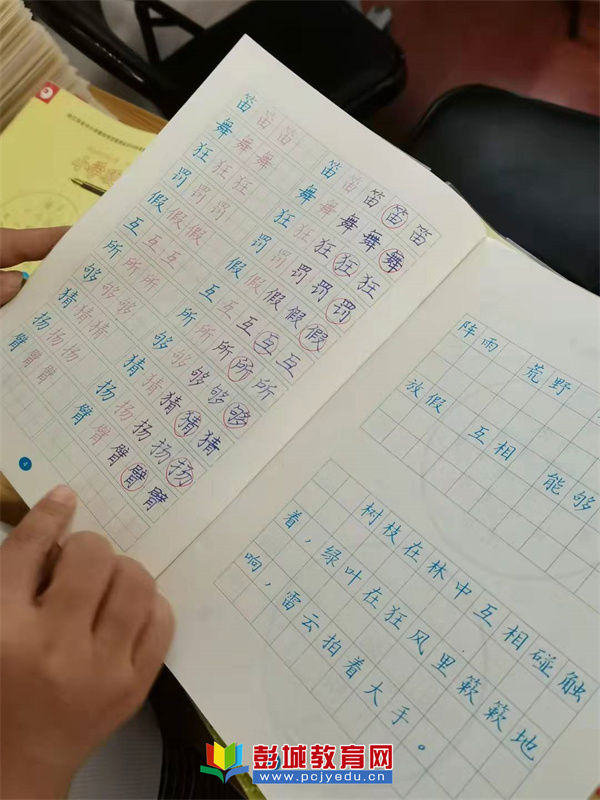 笛 笛 笛 笛 笛 笛 笛 笛
舞 舞 舞 舞 舞 舞 舞 舞
狂 狂 狂 狂 狂 狂 狂 狂
罚 罚 罚 罚 罚 罚 罚 罚
假 假 假 假 假 假 假 假
互 互 互 互 互 互 互 互
所 所 所 所 所 所 所 所
够 够 够 够 够 够 够 够
猜 猜 猜 猜 猜 猜 猜 猜
扬 扬 扬 扬 扬 扬 扬 扬
臂 臂 臂 臂 臂 臂 臂 臂
阵雨 荒野
放假 互相 能够
树枝在林中互相碰触
着，绿叶在狂风里簌簌地
响，雷云拍着大手。
彭城教育网
www.pcjyedu.cn